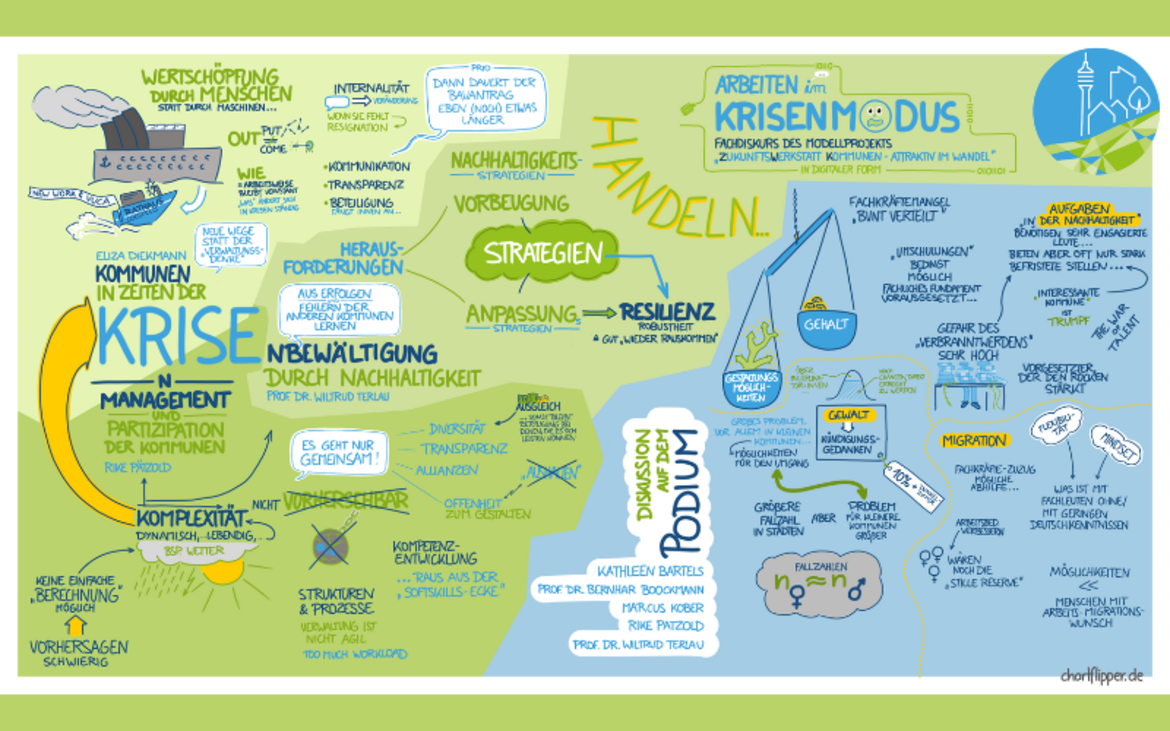 WERTSCHÖPFUNG
DURCH MENSCHEN
STATT DURCH MASCHINEN...
OUT PUT
COME
WIE
NEW WORK & VUCA
RATHAUS
NEUE WEGE
STATT DER
„VERWALTUNGS-
DENKE“
INTERNALITÄT
VERÄNDERUNG
WENN SIE FEHLT
RESIGNATION
PRIO
DANN DAUERT DER
BAUANTRAG
EBEN (NOCH) ETWAS
LÄNGER
• KOMMUNIKATION
• TRANSPARENZ
• BETEILIGUNG
FÄNGT INNEN AN...
ELIZA DIEKMANN
KOMMUNEN
IN ZEITEN DER
KRISE
N
MANAGEMENT
UND
PARTIZIPATION
DER KOMMUNEN
RIKE PÄTZOLD
NBEWÄLTIGUNG
DURCH NACHHALTIGKEIT
PROF DR. WILTRUD TERLAU
HERAUS-
FORDERUNGEN
AUS ERFOLGEN
FEHLERN DER
ANDEREN KOMMUNEN
LERNEN
NACHHALTIGKEITS-
STRATEGIEN
VORBEUGUNG
STRATEGIEN
ANPASSUNGS
STRATEGIEN
RESILIENZ
ROBUSTHEIT
& GUT „WIEDER RAUSKOMMEN“
HANDELN...
ES GEHT NUR
GEMEINSAM!
DIVERSITÄT
TRANSPARENZ
ALLIANZEN
OFFENHEIT
ZUM GESTALTEN
AUSGLEICH
NICHT VORHERSEHBAR
KOMPLEXITÄT
DYNAMISCH, LEBENDIG,...
BSP. WETTER
KEINE EINFACHE
„BERECHNUNG“
MÖGLICH
VORHERSAGEN
SCHWIERIG
KOMPETENZ-
ENTWICKLUNG
..."RAUS AUS DER
„SOFTSKILLS-ECKE“
STRUKTUREN
& PROZESSE
VERWALTUNG IST
NICHT AGIL
TOO MUCH WORKLOAD
ARBEITEN im
KRISENMODUS
FACHDISKURS DES MODELLPROJEKTS
„ZUKUNFTSWERKSTATT KOMMUNEN - ATTRAKTIV IM WANDEL“
IN DIGITALER FORM
DISKUSSION
AUF DEM
PODIUM
KATHLEEN BARTELS
PROF DR. BERNHAR BOOCKMANN
MARCUS KOBER
RIKE PATZOLD
PROF. DR. WILTRUD TERLAU
FACHKRÄFTEMANGEL
„BUNT VERTEILT“
„UMSCHULUNGEN“
BEDINGT
MÖGLICH
FACHLICHES FUNDAMENT
VORAUSGESETZT...
AUFGABEN
„IN DER NACHHALTIGKEIT“
BENÖTIGEN SEHR ENGAGIERTE
LEUTE...
BIETEN ABER OFT NUR STARK
BEFRISTETE STELLEN...
„INTERESSANTE
KOMMUNE“
IST
TRUMPF
THE WAR
OF
TALENT
GEFAHR DES
„VERBRANNTWERDENS“
SEHR HOCH
VORGESETZTER
DER DEN RÜCKEN
STÄRKT
GEHALT
GESTALTUNGS
MÖGLICH-
KEITEN
GROẞES PROBLEM,
VOR ALLEM IN KLEINEN
KOMMUNEN...
MÖGLICHKEITEN
FÜR DEN UMGANG
GEWALT
KÜNDIGUNGS-
GEDANKEN
10% +
GRÖẞERE
FALLZAHL
IN STÄDTEN
ABER
PROBLEM
FÜR KLEINERE
KOMMUNEN
GRÖẞER
FALLZAHLEN
n♀ ≈ n♂
MIGRATION
FACHKRÄFTE-ZUZUG
MÖGLICHE
ABHILFE...
ARBEITSBED.
VERBESSERN
WÄREN
NOCH DIE
„STILLE RESERVE“
FLEXIBILI-
TÄT
MINDSET
WAS IST MIT
FACHLEUTEN OHNE/
MIT GERINGEN
DEUTSCHKENNTNISSEN
MÖGLICHKEITEN
<<
MENSCHEN MIT
ARBEITS-MIGRATIONS-
WUNSCH
chartflipper.de